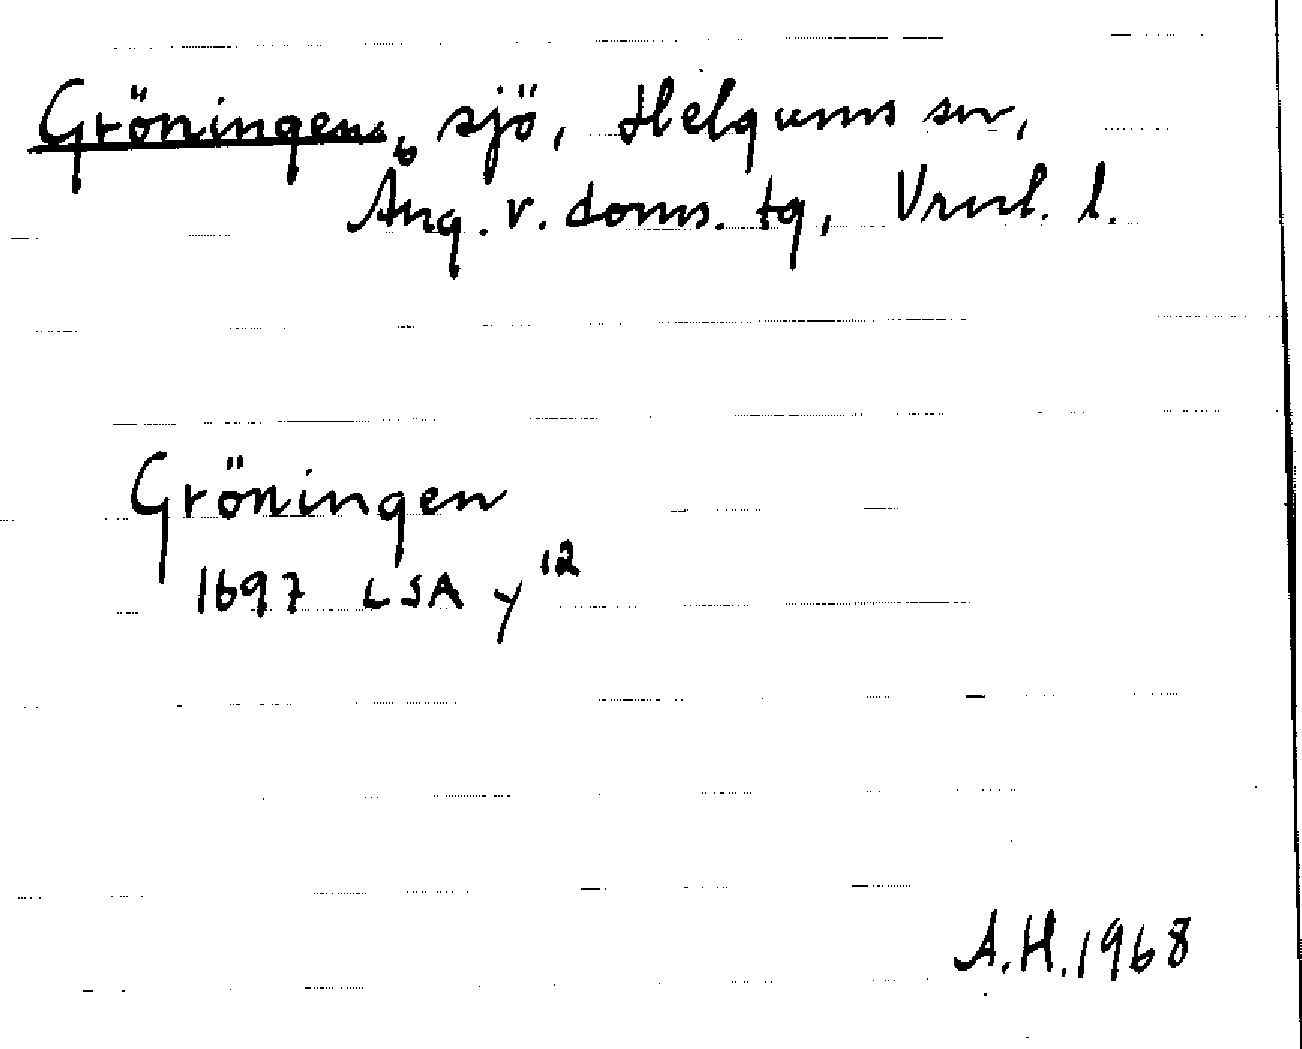 Gröningen, sjö, Helgums sn,
Ång. v. doms. tg, Vrnl. l.
Gröningen
1697 LSA y 12
A.H. 1968